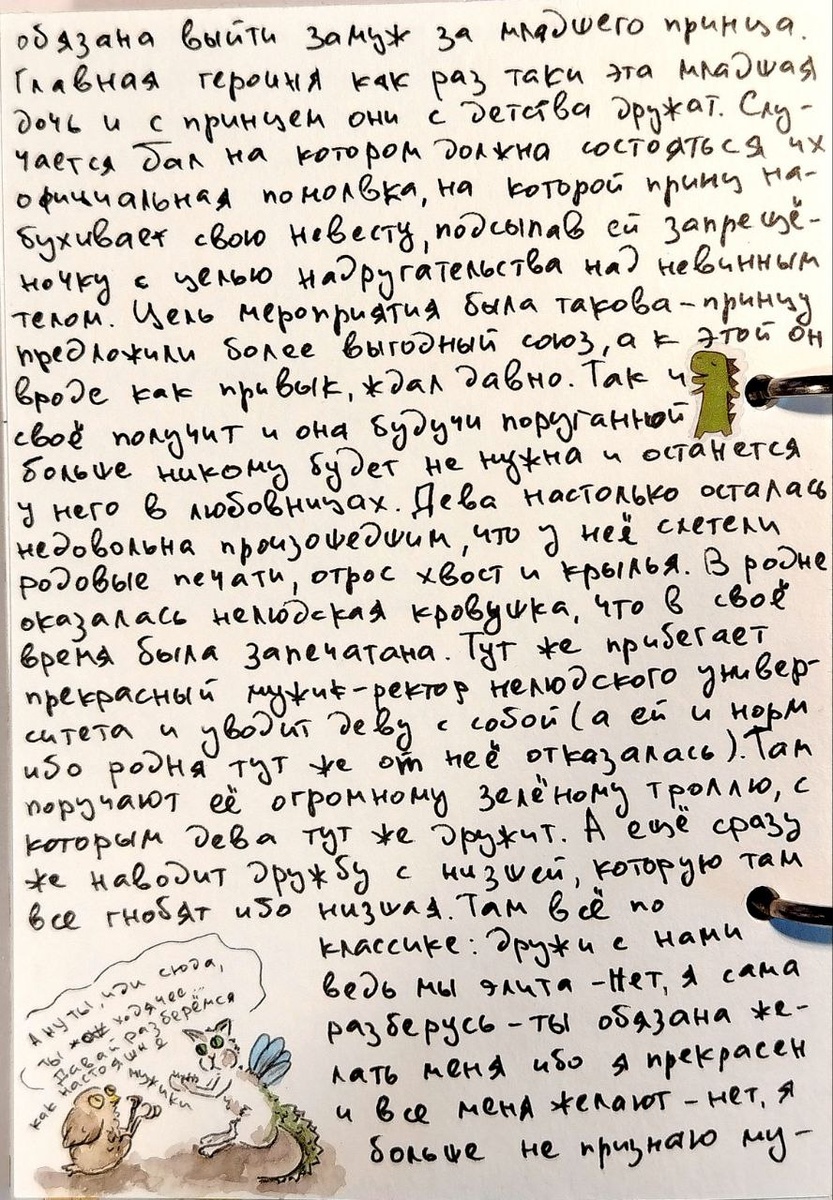 обязана выйти замуж за младшего принца.
Главная героиня как раз таки эта младшая
дочь и с принцем они с детства дружат. Слу-
чается бал на котором должна состояться их
официальная помолвка, на которой принц на-
бухивает свою невесту, подсыпав ей запрещё-
ночку с целью надругательства над невинным
телом. Цель мероприятия была такова - принцу
предложили более выгодный союз, а к этой он
вроде как привык, ждал давно. Так и
своё получит и она будучи поруганной
больше никому будет не нужна и останется
у него в любовницах. Дева настолько осталась
недовольна произошедшим, что у неё слетели
родовые печати, отрос хвост и крылья. В родне
оказалась нелюдская кровушка, что в своё
время была запечатана. Тут же прибегает
прекрасный мужик-ректор нелюдского универ-
ситета и уводит деву с собой (а ей и норм
ибо родня тут же от неё отказалась). Там
поручают её огромному зелёному троллю, с
которым дева тут же дружит. А ещё сразу
же наводит дружбу с низшей, которую там
все гнобят ибо низшая. Там всё по
классике: дружи с нами
ведь мы элита - Нет, я сама
разберусь - ты обязана же-
лать меня ибо я прекрасен
и все меня желают - нет, я
больше не признаю му-
А ну ты, иди сюда,
ты ходячее...
Давай разберёмся
как настоящие
мужики